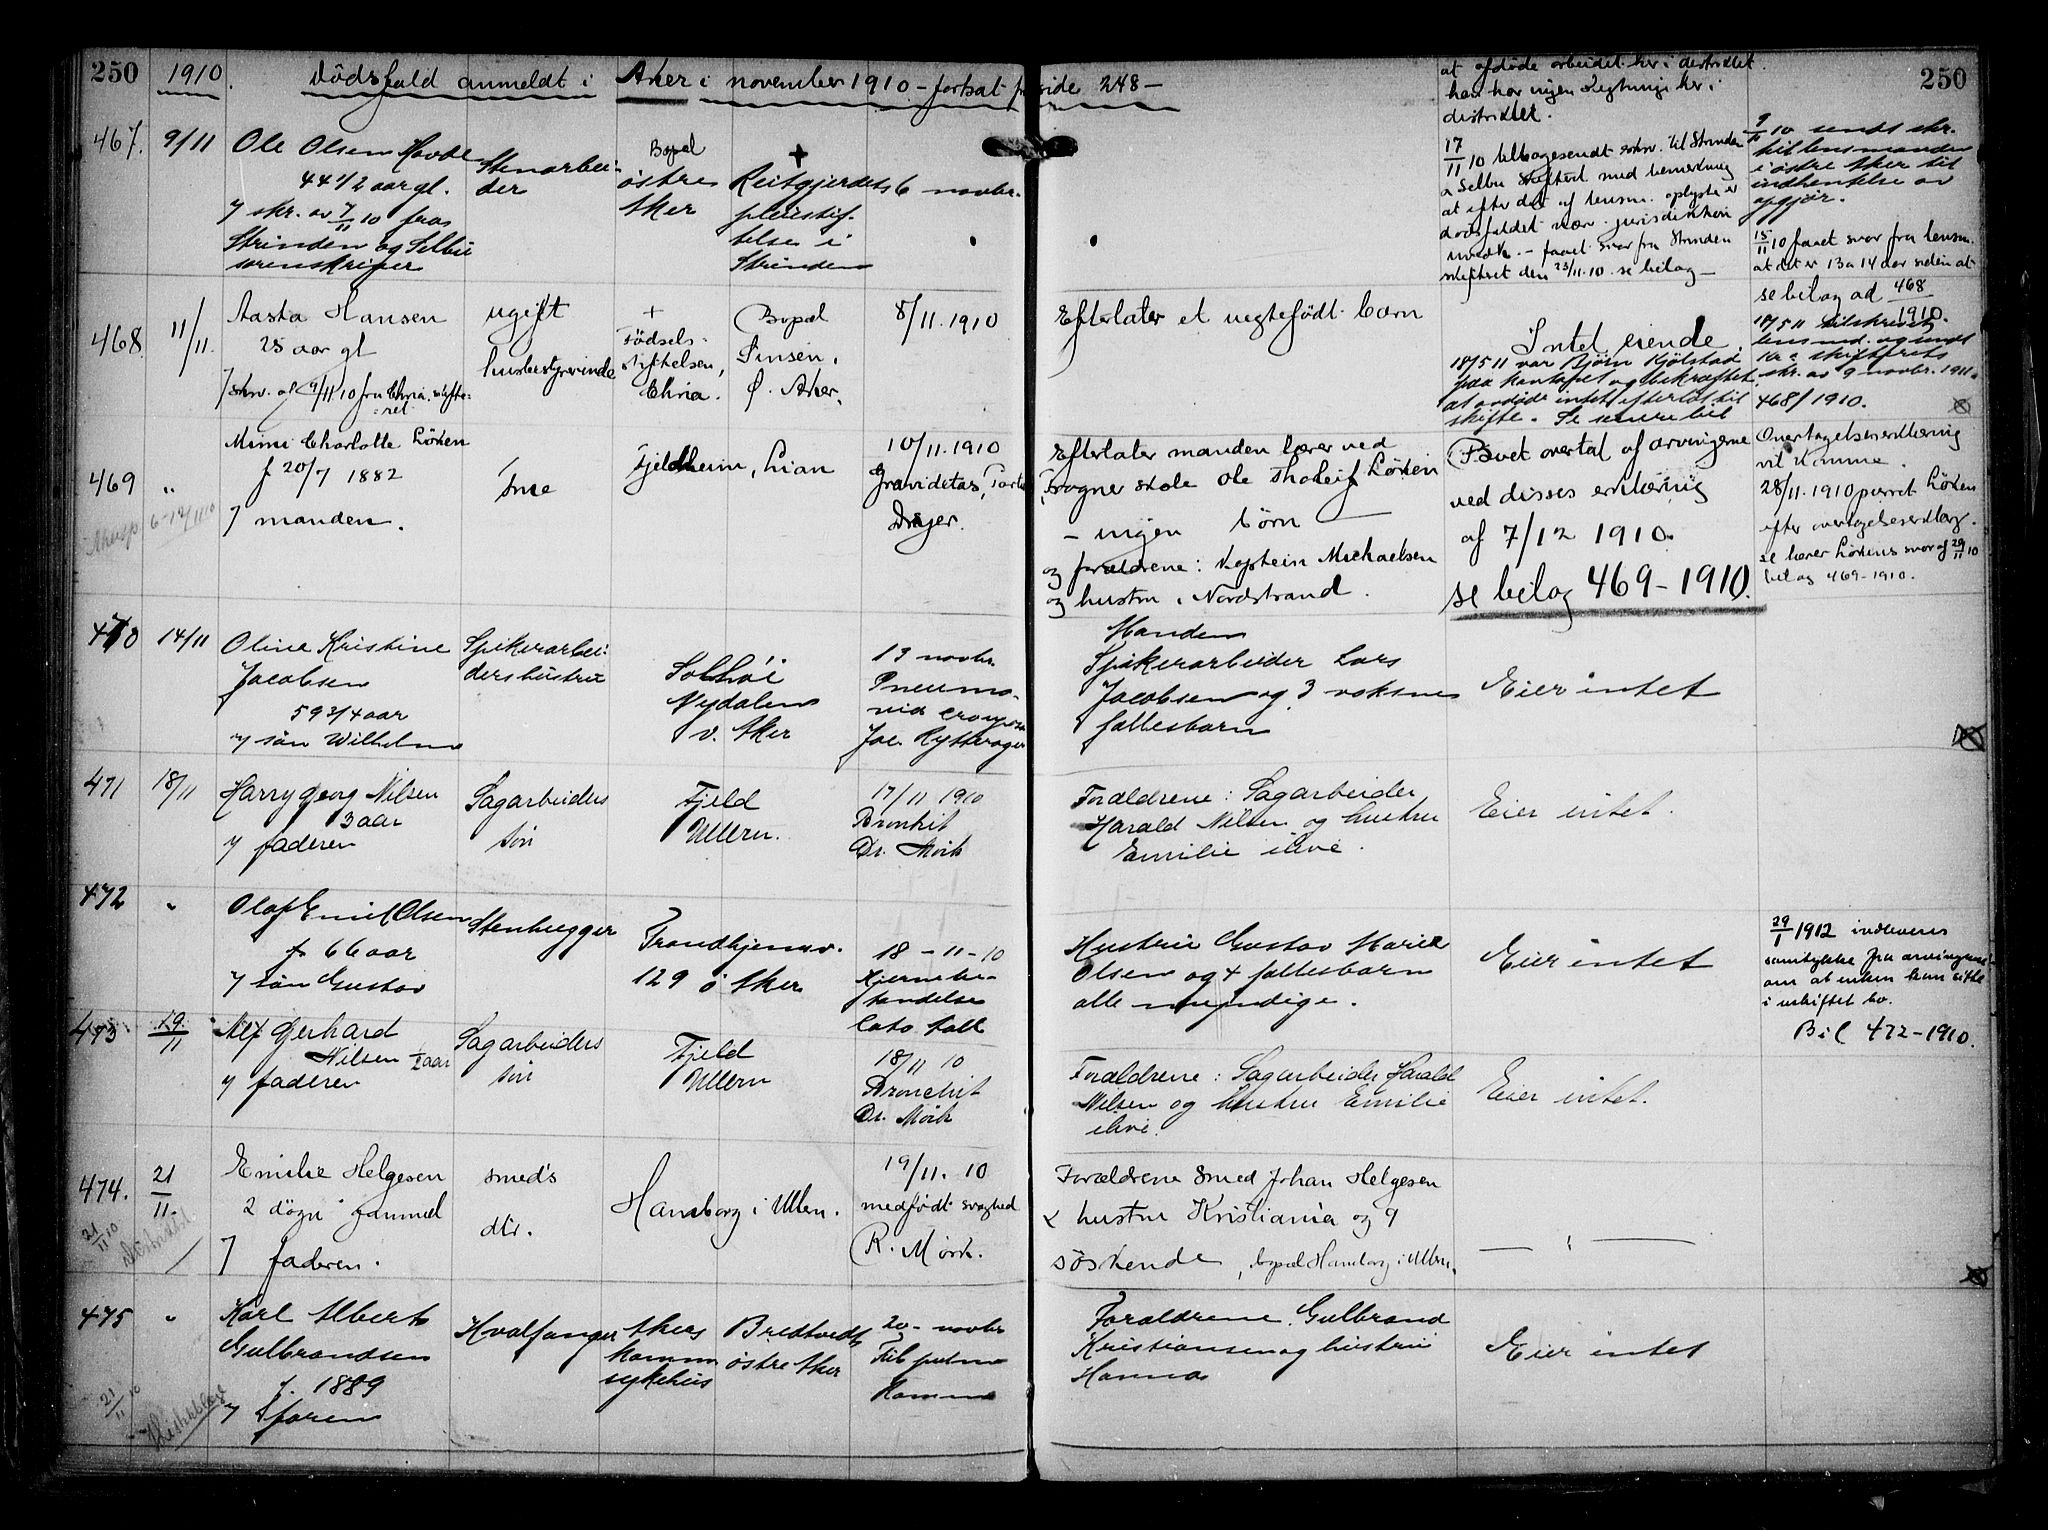 250 1910. Dödsfald anmeldt i Aker i november 1910 – fortsat side 248 – 250
467. 9/11 Ole Olsen Hovde
44 1/2 aar gl.
7 skr. av 7/11 10 fra
Strinden og Selbu
sorenskriver
Stenarbei-
der
Bopæl
östre
Aker
+
Reitgjerdets
pleiestif-
telse i
Strinden
6 novbr.
at afdøde arbeidet her i distriktet.
han har ingen slegtninge her i
distriktet.
17/11 10 tilbagesendt skr. til Strinden
& Selbu skifteret med bemerkning
at efter det af lensm. oplyste er
dødsfaldet vor jurisdiktion
uvedk. – faaet svar fra Strinden
skifteret den 23/11.10. se bilag –
9/11 10 sendt skr.
til lensmanden
i østre Aker til
indhentelse av
opgjør.
15/11 10 faaet svar fra lensm.
at det er 13 a 14 dar siden at
468 11/11. Aasta Hansen
25 aar gl
7 skr. af 9/11 10 fra Chria. skifte-
ret
ugift
husbestyrerinde
+
Födsels-
stiftelsen,
Chria.
Bopæl
Sinsen,
Ö. Aker.
8/11.1910
Efterlater et uegtefödt barn
Intet eiende.
18/5 11 var Bjørn Kjölstad
paa kontoret og bekræftet
at avdöde intet efterlot til
skifte. Se senere bil
se bilag ad 468
1910.
18/5 11 tilskrevet
lensmd. og sendt
Kr.a skifterets
skr. av 9 novbr. 1911.
468/1910.
469 " Mimi Charlotte Löken
f 20/7 1882
7 manden.
frue
Fjeldheim, Lian
10/11.1910
Graviditas,
Drejer.
Efterlater manden lærer ved
Frogner skole Ole Thorleif Löken
– ingen børn –
og forældrene: Kaptein Michaelsen
og hustru, Nordstrand.
Boet overtat af arvingerne
ved disses erklæring
af 7/12 1910.
se bilag 469–1910.
Overtagelseserklæring
vil komme.
28/11.1910 purret Löken
efter overtagelseserklærg.
se lærer Lökens svar af 29/11 10
bilag 469–1910.
470 14/11 Oline Kristine
Jacobsen
59 3/4 aar
7 sön Wilhelm
Spikerarbei-
ders hustru
Solhöi
Nydalen
v. Aker
13 novbr.
Pneumo-
nia crouposa
Joc. Rytterager
Manden
Spikerarbeider Lars
Jacobsen og 3 voksne
fællesbarn
Eier intet
471 18/11 Harry Georg Nilsen
3 aar
7 faderen
Sagarbeiders
sön
Fjeld
Ullern.
17/11 1910
Bronkit
Dr. Mörk
Forældrene: Sagarbeider
Harald Nilsen og hustru
Emilie ilive.
Eier intet.
472 " Olaf Emil Olsen
66 aar
7 sön Gustav
Stenhugger
Trondhjemsv.
129 ö Aker
18–11–10
Hjernebe-
tændelse
Forældrene
Hustru Gustav Marie
Olsen og 4 fællesbarn
alle myndige.
Eier intet
29/1 1912 indleveres
samtykke fra arvingerne
om at enken kan sitte
i uskiftet bo.
Bil 472–1910.
473 19/11 Alf Gerhard
Nilsen 1/2 aar
7 faderen
Sagarbeiders
sön
Fjeld
Ullern
18/11 10
Bronchit
Dr. Mörk
Forældrene: Sagarbeider Harald
Nilsen og hustru Emilie
ilive.
Eier intet.
474. 21/11. Emilie Helgesen
2 dögn gammel
7 faderen.
21/11 10
smed's
dtr.
Hansborg i Ullern.
19/11. 10
medfødt svaghed
R. Mörk.
Forældrene smed Johan Helgesen
& hustru Kristiania og 9
söskende, bopæl Hansborg i Ullern.
— " —
475 " Karl Albert
Gulbrandsen
f. 1889
7 Sforen
21/11 10
Hvalfanger
Akers
komm
sykehus
Bredtvedt
östre Aker
20 novbr
Tub pulm
Komm
Forældrene Gulbrand
Kristiansen og hustru
Hanna
Eier intet